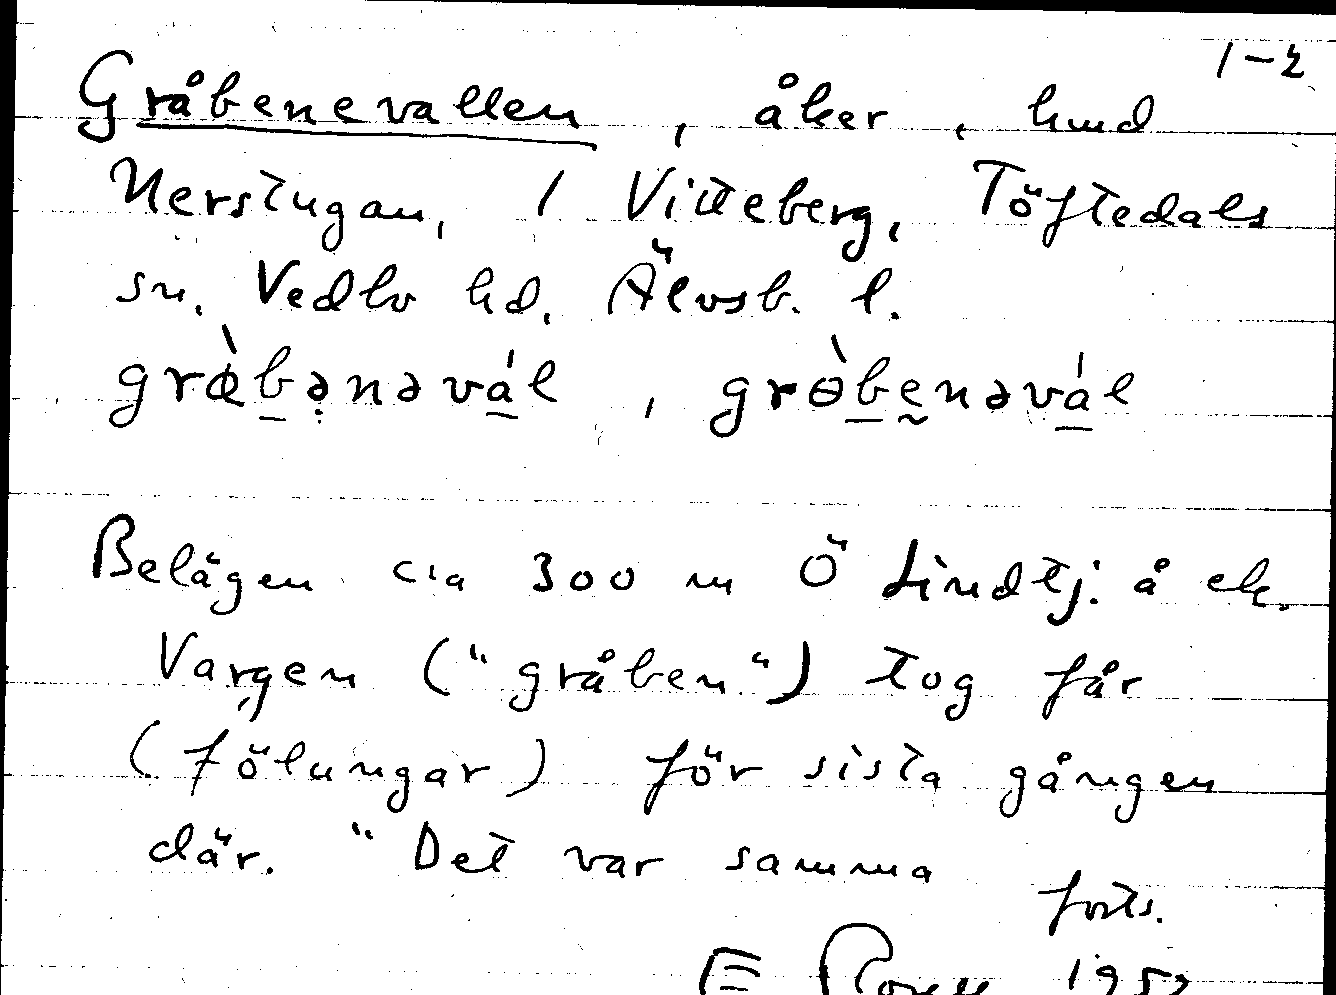 1-2
Gråbenevallen, åker, hmd
Nerstugan, 1 Vitteberg, Töftedals
sn. Vedbo hd. Älvsb. l.
græ̀bənəvál, grɵ̀benəvál
Belägen ca 300 m Ö Lindtj. å ek.
Vargen ("gråben") tog får
(fölungar) för sista gången
där. "Det var samma
forts.
E 195